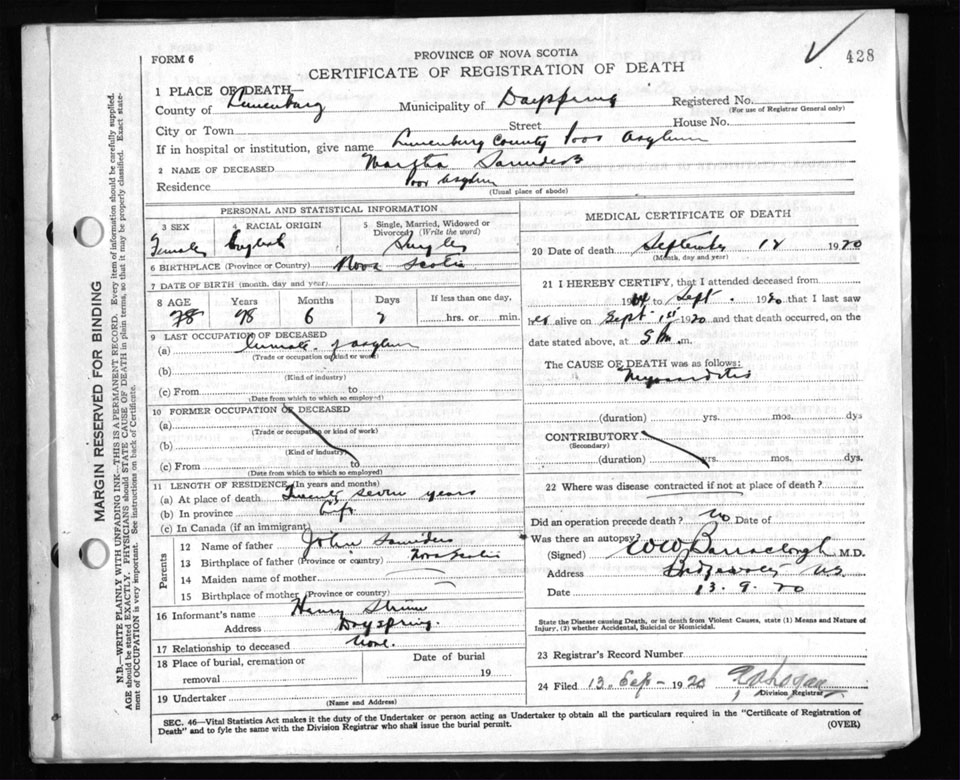 428
FORM 6
PROVINCE OF NOVA SCOTIA
CERTIFICATE OF REGISTRATION OF DEATH
MARGIN RESERVED FOR BINDING
N.B.—WRITE PLAINLY WITH UNFADING INK—THIS IS A PERMANENT RECORD. Every item of information should be carefully supplied.
AGE should be stated EXACTLY. PHYSICIANS should STATE CAUSE OF DEATH in plain terms, so that it may be properly classified. Exact state-
ment of OCCUPATION is very important. See instructions on back of Certificate.
1 PLACE OF DEATH—
County of Lunenburg Municipality of Dayspring Registered No.
(For use of Registrar General only)
City or Town Street House No.
If in hospital or institution, give name Lunenburg County Poor Asylum
2 NAME OF DECEASED Martha Saunders
Residence Poor Asylum
(Usual place of abode)
PERSONAL AND STATISTICAL INFORMATION
3 SEX 4 RACIAL ORIGIN 5 Single, Married, Widowed or Divorced (Write the word)
Female English Single
6 BIRTHPLACE (Province or Country) Nova Scotia
7 DATE OF BIRTH (month, day and year)
8 AGE Years Months Days If less than one day,
78 98 6 2 hrs. or min.
9 LAST OCCUPATION OF DECEASED
(a) Inmate of asylum
(Trade or occupation or kind or work)
(b)
(Kind of industry)
(c) From to
(Date from which to which so employed)
10 FORMER OCCUPATION OF DECEASED
(a)
(Trade or occupation or kind of work)
(b)
(Kind of industry)
(c) From to
(Date from which to which so employed)
11 LENGTH OF RESIDENCE (In years and months)
(a) At place of death Twenty seven years
(b) In province Life
(c) In Canada (if an immigrant)
Parents
12 Name of father John Saunders
13 Birthplace of father (Province or country) Nova Scotia
14 Maiden name of mother
15 Birthplace of mother (Province or country)
16 Informant's name Henry
Address Dayspring.
17 Relationship to deceased None.
18 Place of burial, cremation or removal Date of burial 19
19 Undertaker
(Name and Address)
MEDICAL CERTIFICATE OF DEATH
20 Date of death September 12 1920
(Month, day and year)
21 I HEREBY CERTIFY, that I attended deceased from
19 to Sept. 1920 that I last saw
her alive on Sept 1st 1920 and that death occurred, on the
date stated above, at 5 m.
The CAUSE OF DEATH was as follows:
Myocarditis
(duration) yrs. mos. dys
CONTRIBUTORY
(Secondary)
(duration) yrs. mos. dys.
22 Where was disease contracted if not at place of death?
Did an operation precede death? No Date of
Was there an autopsy?
(Signed) M.D.
Address Bridgewater N.S.
Date 13.9.20
State the Disease causing Death, or in death from Violent Causes, state (1) Means and Nature of
Injury, (2) whether Accidental, Suicidal or Homicidal.
23 Registrar's Record Number
24 Filed 13. Sep - 1920
Division Registrar
SEC. 46—Vital Statistics Act makes it the duty of the Undertaker or person acting as Undertaker to obtain all the particulars required in the "Certificate of Registration of
Death" and to fyle the same with the Division Registrar who shall issue the burial permit. (OVER)